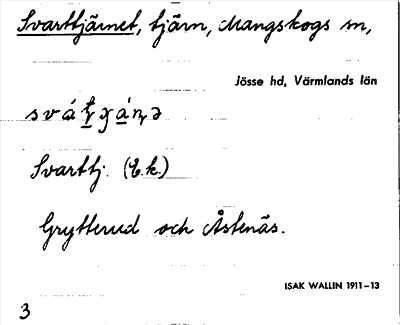 Svarttjärnet, tjärn, Mangskogs sn,
Jösse hd, Värmlands län
Svarttj. (E.k.)
Grytterud och Åstenäs.
ISAK WALLIN 1911–13
3